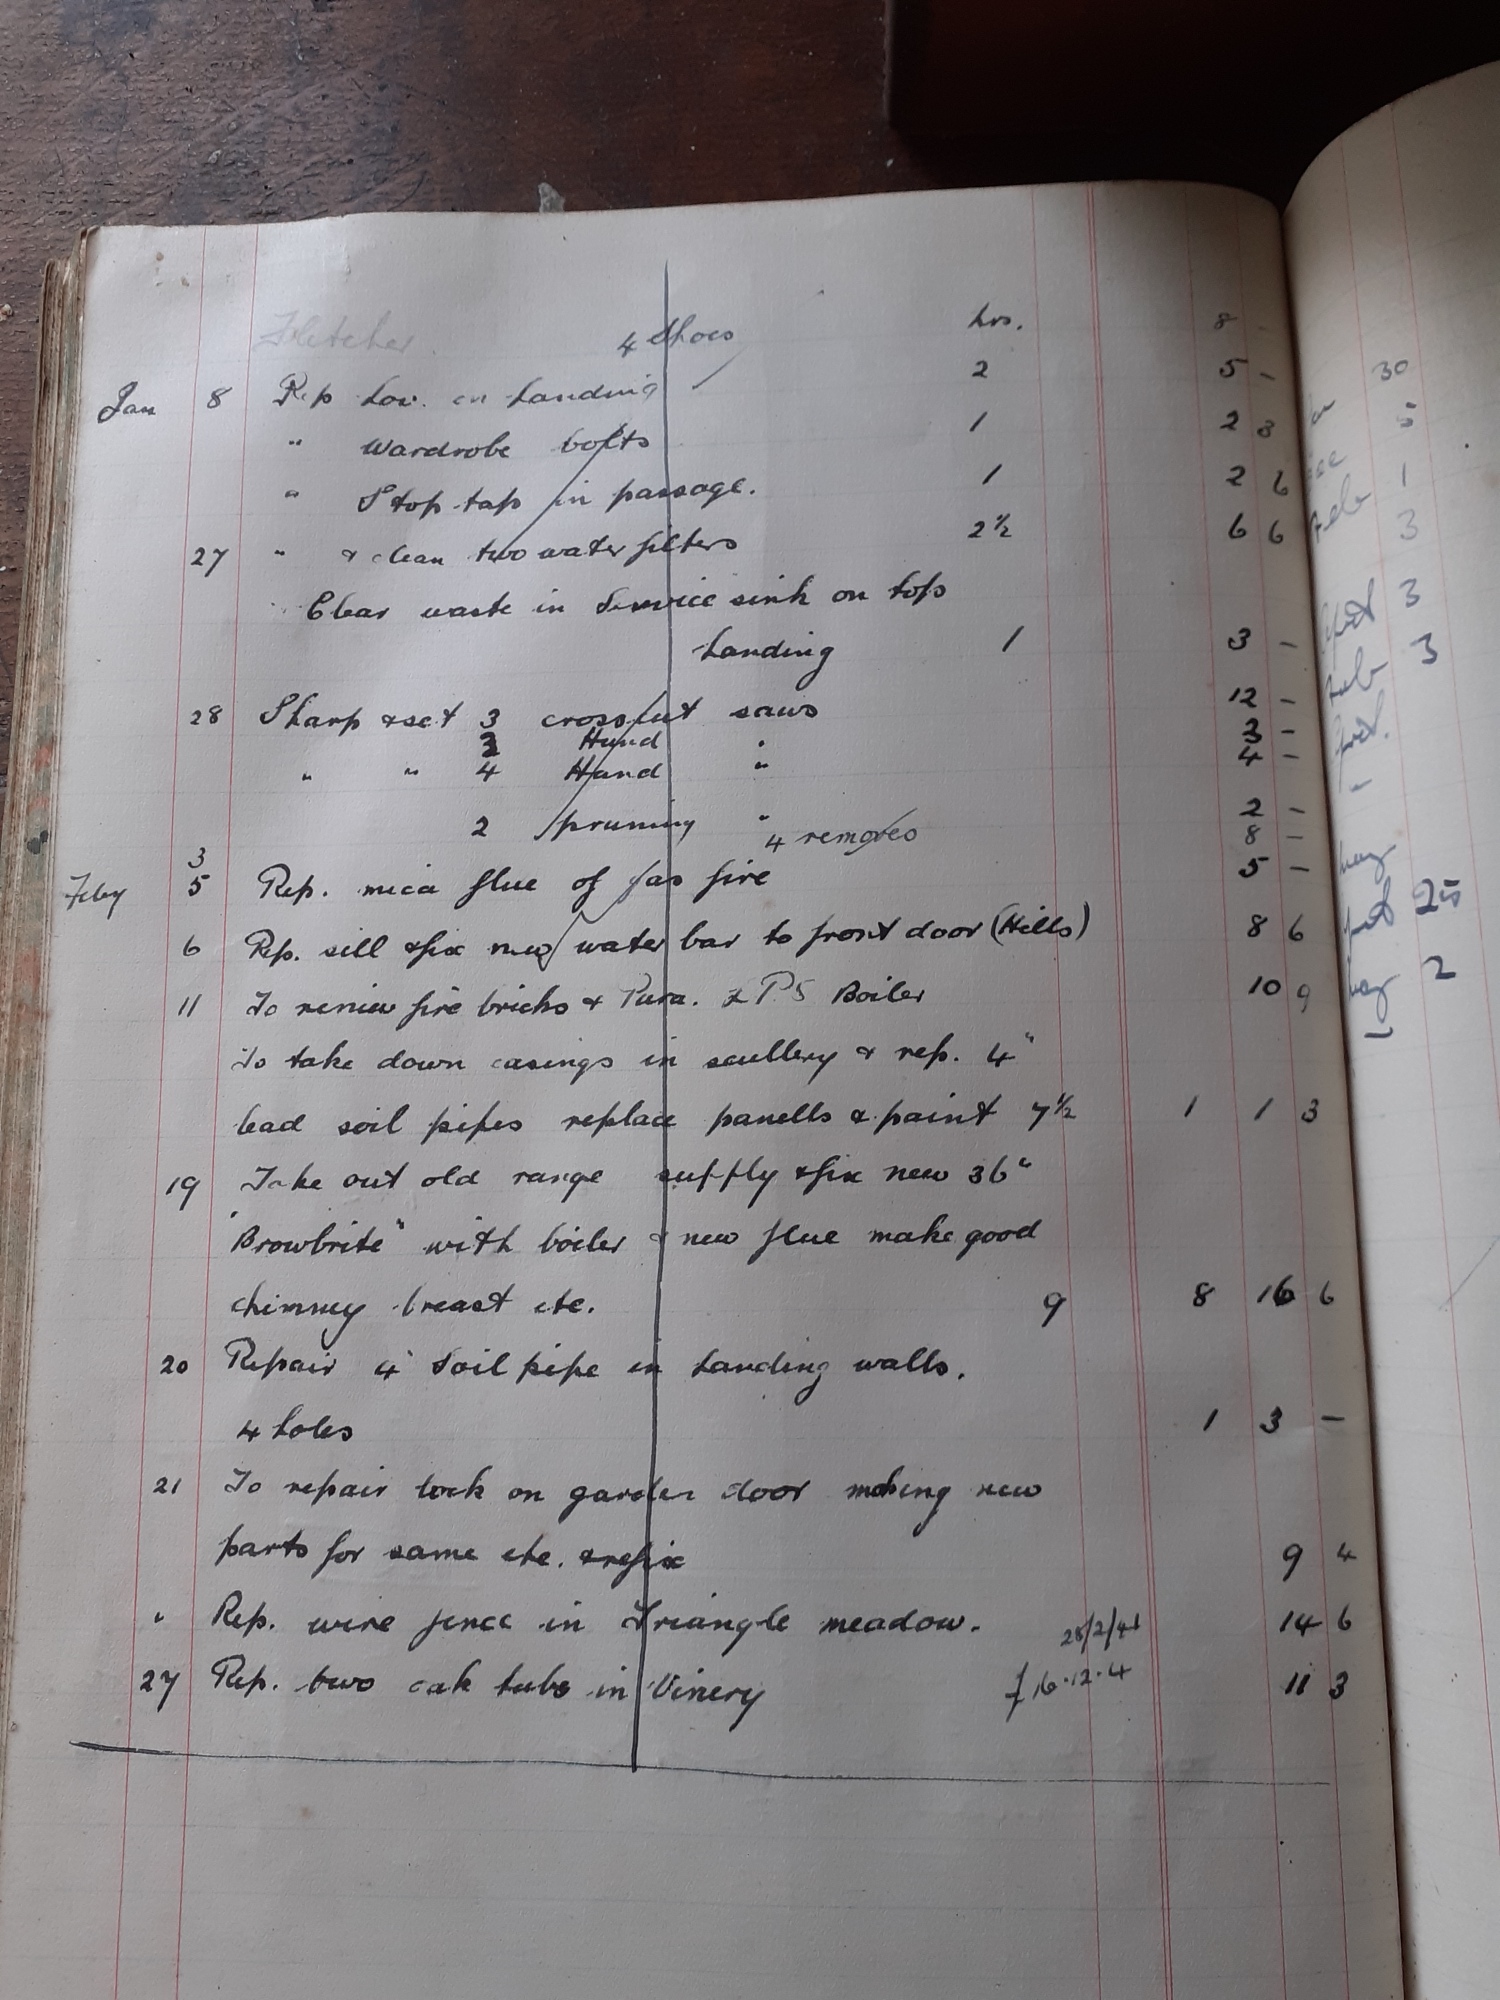 Fletcher. 4 Shoes hrs. 8 -
Jan 8 Rep Lav. on Landing 2 5 -
" Wardrobe bolts 1 2 8
" Stop tap in passage. 1 2 6
27 " & clean two water filters 2½ 6 6
Clear waste in Service sink on top
Landing 1 3 -
28 Sharp & set 3 crosscut saws 12 -
3 Hand " 3 -
" " 4 Hand " 4 -
2 pruning " 2 -
3 4 removes 8 -
Feby 5 Rep. mica flue of gas fire 5 -
6 Rep. sill & fix new water bar to front door (Hills) 8 6
11 To renew fire bricks & Pura. P5 Boiler 10 9
To take down casings in scullery & rep. 4"
lead soil pipes replace panells & paint 7½ 1 1 3
19 Take out old range supply & fix new 36"
"Browbrite" with boiler & new flue make good
chimney breast etc. 9 8 16 6
20 Repair 4" Soil pipe in Landing walls.
4 holes 1 3 -
21 To repair lock on garden door making new
parts for same etc. & refix 9 4
" Rep. wire fence in Triangle meadow. 28/2/41 14 6
27 Rep. two oak tubs in Vinery £16.12.4 11 3
30
5
1
Feb 3
3
Feb 3
25
2